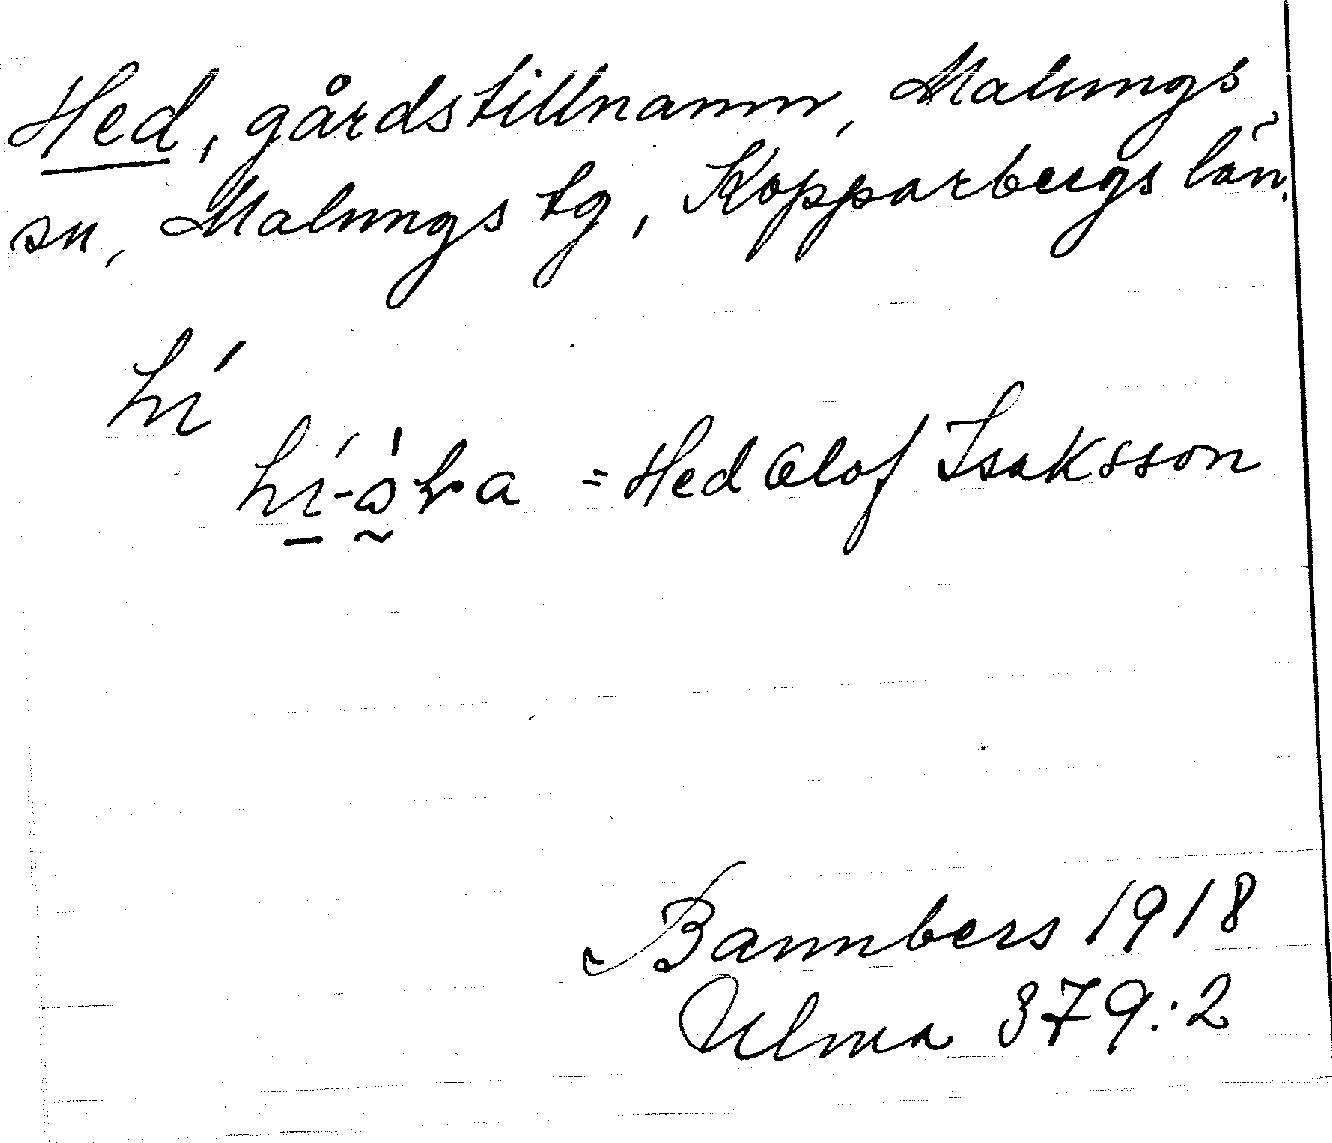 Hed, gårdstillnamn, Malungs
sn, Malungs tg, Kopparbergs län.
hí
hí-
= Hed Olof Isaksson
Bannbers 1918
Ulma 379:2